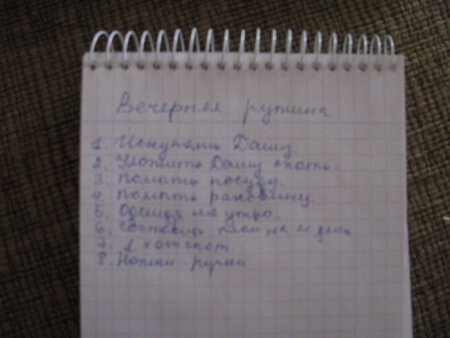 Вечерняя рутина
1. Искупать Дашу.
2. Уложить Дашу спать.
3. Помыть посуду.
4. Помыть раковину.
5. Одежда на утро.
6. Составить план на день
7. 1 хотспот
8. Ножки - ручки